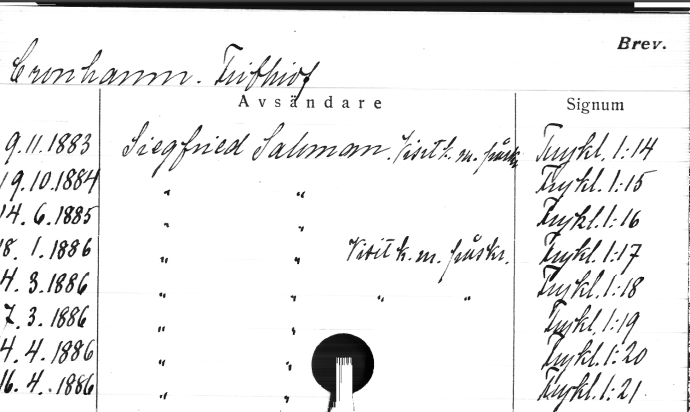 Brev.
Cronhamn. Frithiof
Avsändare Signum
9.11.1883 Siegfried Salman. Visitk. m. påskr. Tryckl. 1:14
19.10.1884 " " Tryckl. 1:15
14.6.1885 " " Tryckl. 1:16
18.1.1886 " " Visitk. m. påskr. Tryckl. 1:17
4.3.1886 " " " " Tryckl. 1:18
7.3.1886 " " Tryckl. 1:19
4.4.1886 " " Tryckl. 1:20
16.4.1886 " " Tryckl. 1:21